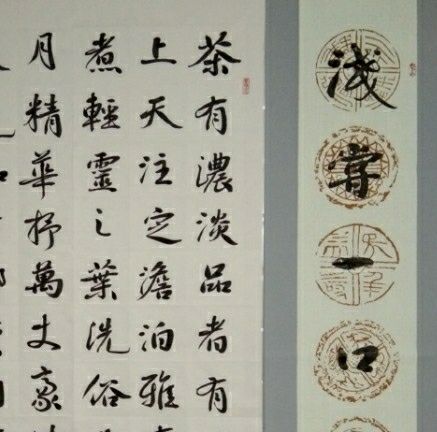 淺嘗一口
茶有濃淡品者有
上天注定澹泊雅
煮輕靈之葉洗俗
月精華抒萬丈豪